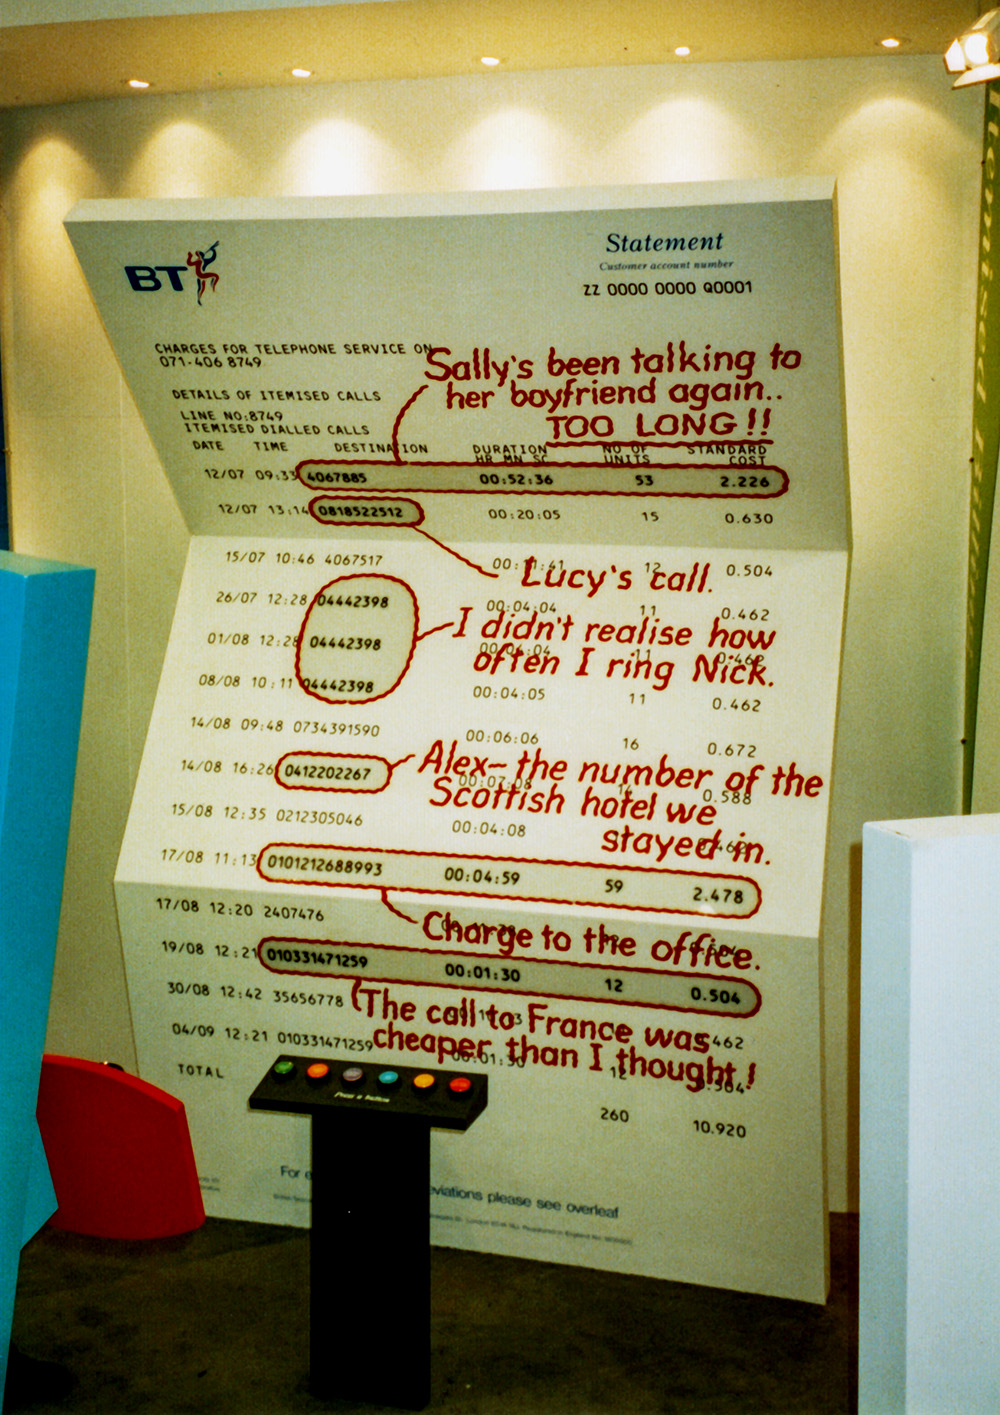 BT
Statement
Customer account number
ZZ 0000 0000 Q0001
CHARGES FOR TELEPHONE SERVICE ON
071-406 8749
Sally's been talking to
her boyfriend again..
TOO LONG!!
DETAILS OF ITEMISED CALLS
LINE NO:8749
ITEMISED DIALLED CALLS
DATE TIME DESTINATION DURATION HR MN SC NO OF UNITS STANDARD COST
12/07 09:33 4067885 00:52:36 53 2.226
12/07 13:14 0818522512 00:20:05 15 0.630
15/07 10:46 4067517 12 0.504
Lucy's call.
26/07 12:28 04442398 00:04:04 11 0.462
I didn't realise how
01/08 12:28 04442398 11
often I ring Nick.
08/08 10:11 04442398 00:04:05 11 0.462
14/08 09:48 0734391590 00:06:06 16 0.672
Alex- the number of the
14/08 16:26 0412202267 00:07:08 0.588
Scottish hotel we
15/08 12:35 0212305046 00:04:08
stayed in.
17/08 11:13 0101212688993 00:04:59 59 2.478
17/08 12:20 2407476
Charge to the office.
19/08 12:21 010331471259 00:01:30 12 0.504
30/08 12:42 35656778
The call to France was
04/09 12:21 010331471259 00:01:30 12
cheaper than I thought!
TOTAL 260 10.920
Press a button
For
please see overleaf